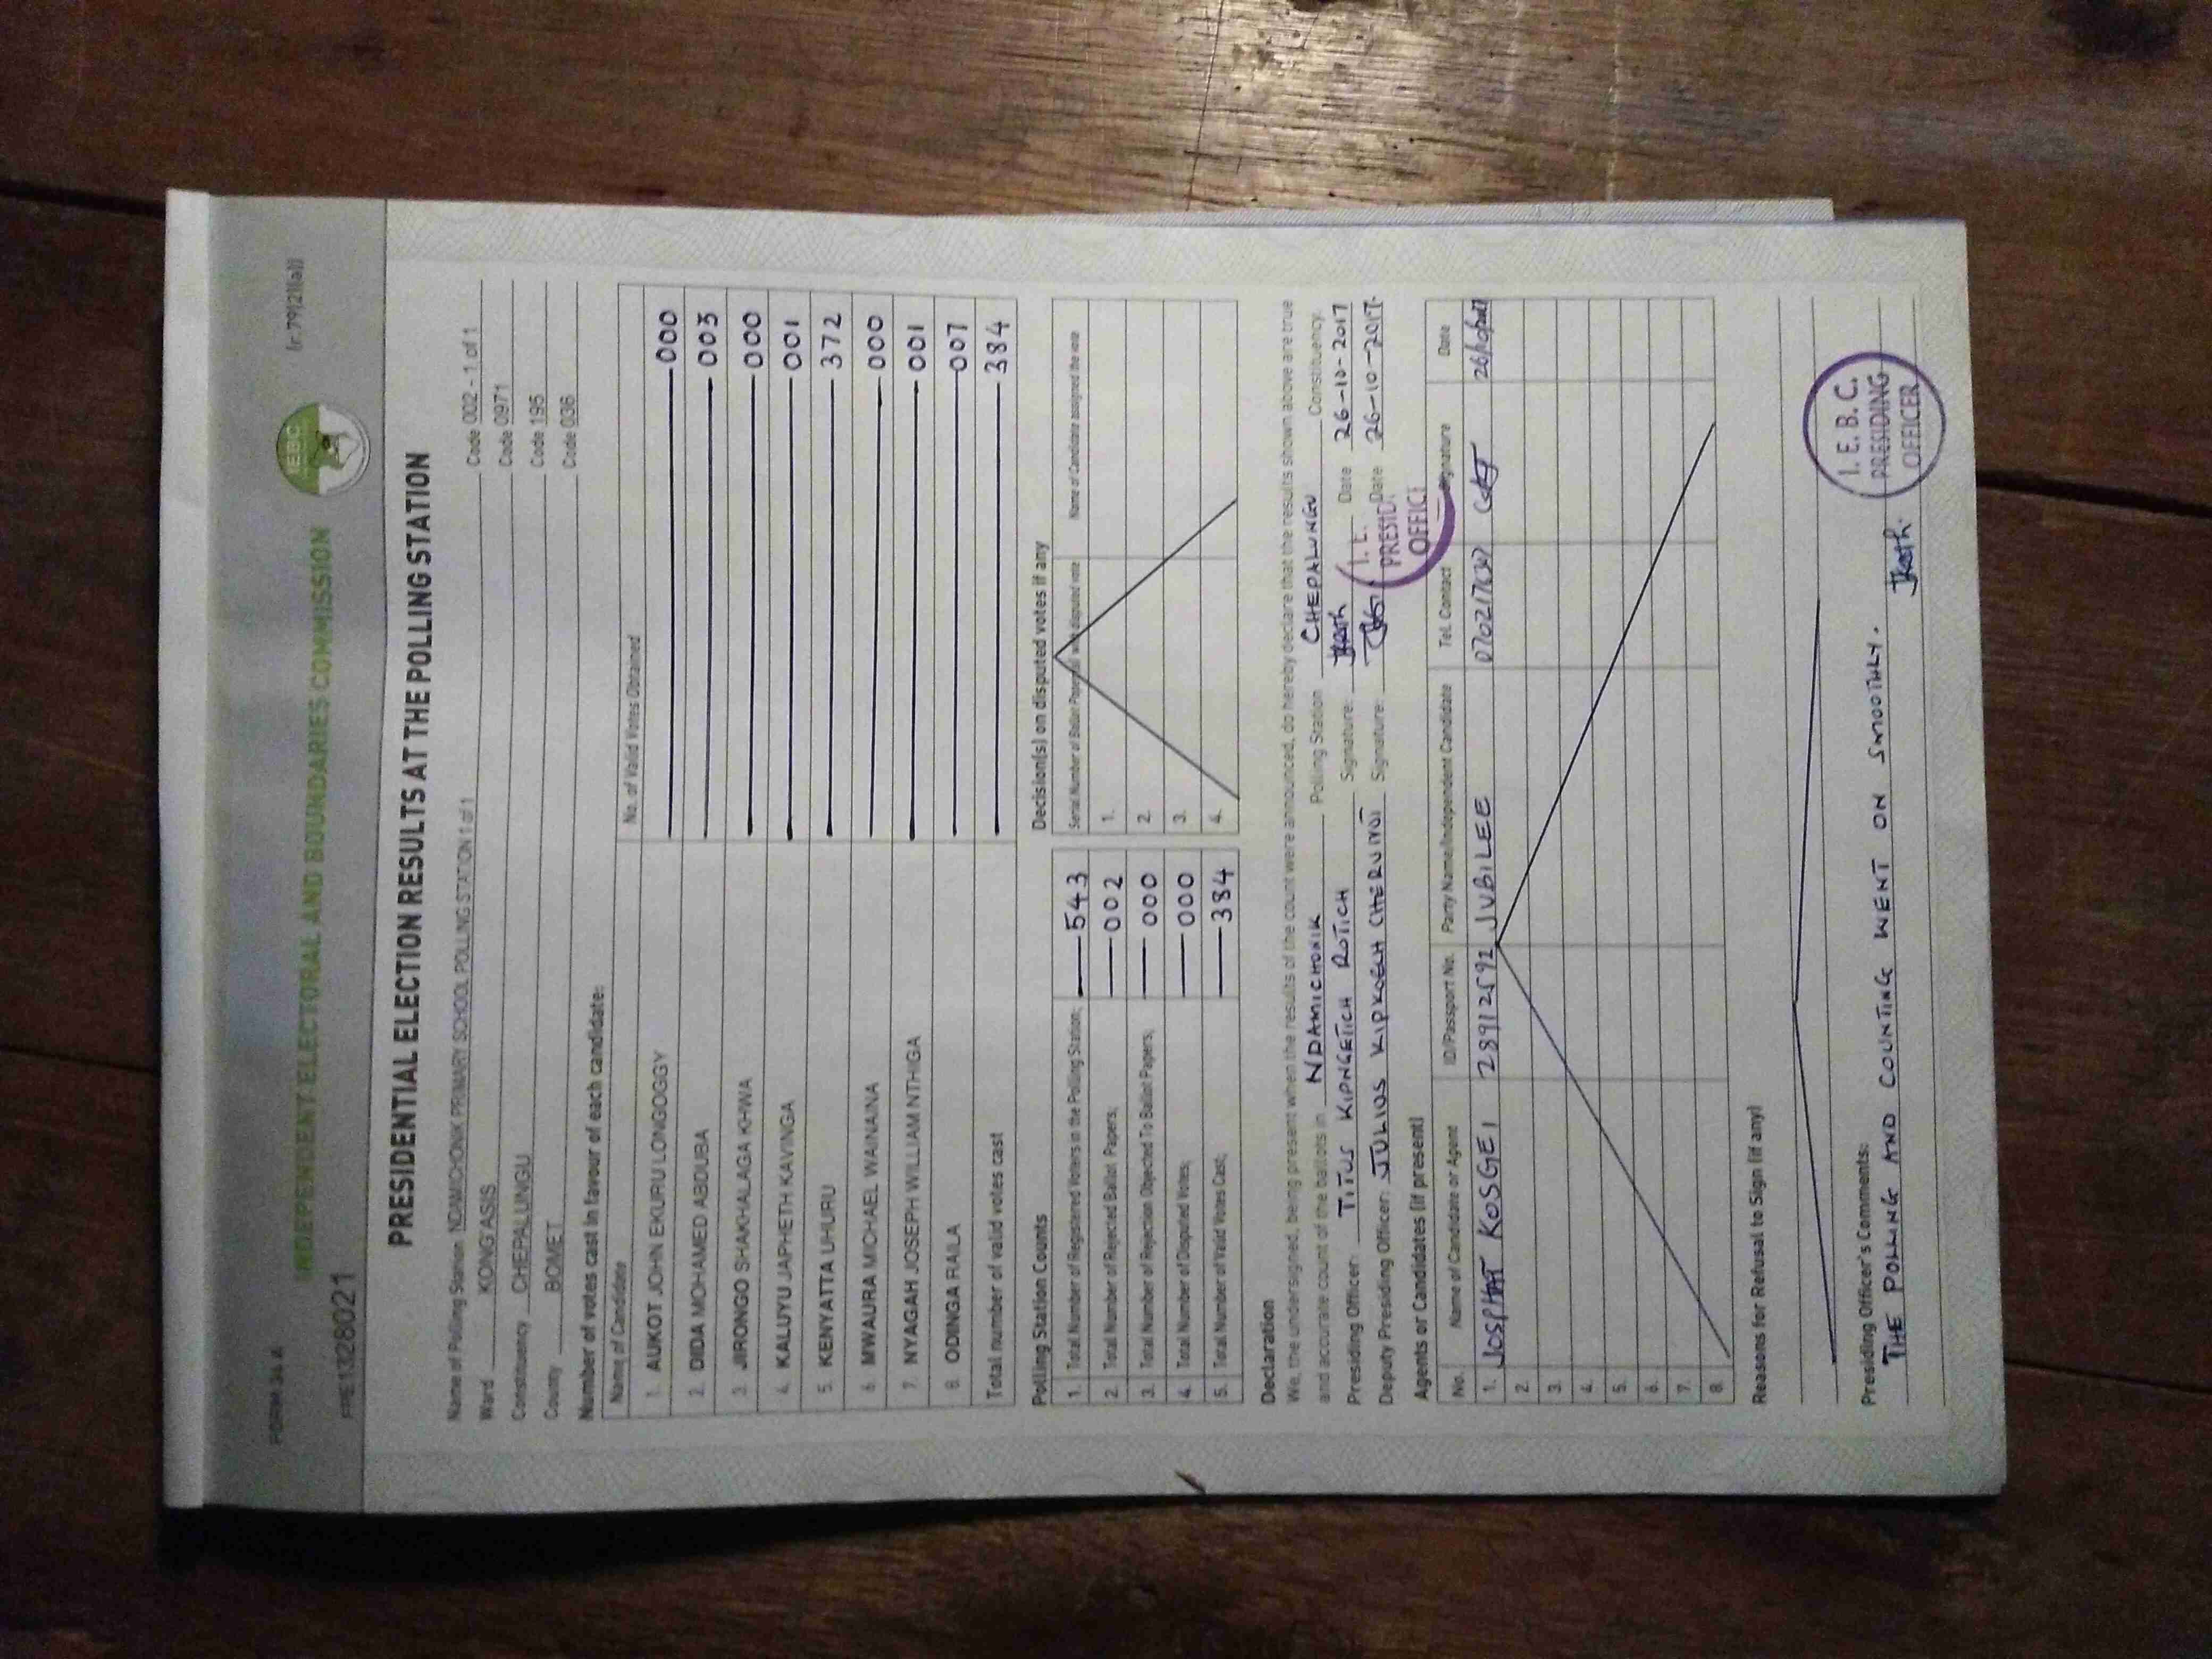 FORM 34 A
INDEPENDENT ELECTORAL AND BOUNDARIES COMMISSION
IEBC
(r.79)2)(a))
PRE1328021
PRESIDENTIAL ELECTION RESULTS AT THE POLLING STATION
Name of Polling Station NDAMICHONIK PRIMARY SCHOOL POLLING STATION 1 of 1 Code 002 - 1 of 1
Ward KONG'ASIS Code 0971
Constituency CHEPALUNGU Code 195
County BOMET Code 036
Number of votes cast in favour of each candidate:
Name of Candidate No. of Valid Votes Obtained
1. AUKOT JOHN EKURU LONGOGGY 000
2. DIDA MOHAMED ABDUBA 003
3. JIRONGO SHAKHALAGA KHWA 000
4. KALUYU JAPHETH KAVINGA 001
5. KENYATTA UHURU 372
6. MWAURA MICHAEL WAINAINA 000
7. NYAGAH JOSEPH WILLIAM NTHIGA 001
8. ODINGA RAILA 007
Total number of valid votes cast 384
Polling Station Counts
1. Total Number of Registered Voters in the Polling Station; 543
2. Total Number of Rejected Ballot Papers; 002
3. Total Number of Rejection Objected To Ballot Papers; 000
4. Total Number of Disputed Votes; 000
5. Total Number of Valid Votes Cast; 384
Decision(s) on disputed votes if any
Serial Number of Ballot Paper disputed vote Name of Candidate assigned the vote
1.
2.
3.
4.
Declaration
We, the undersigned, being present when the results of the count were announced, do hereby declare that the results shown above are true
and accurate count of the ballots in NDAMICHONIK Polling Station CHEPALUNGU Constituency.
Presiding Officer: TITUS KIPNGETICH ROTICH Signature: Date 26-10-2017
Deputy Presiding Officer: JULIUS KIPKOECH CHERUIYOT Signature: Date 26-10-2017
I. E.
PRESID
OFFICE
Agents or Candidates (if present)
No. Name of Candidate or Agent ID/Passport No. Party Name/Independent Candidate Tel. Contact Signature Date
1. JOSPHAT KOSGEI 28912592 JUBILEE
2.
3.
4.
5.
6.
7.
8.
Reasons for Refusal to Sign (if any)
Presiding Officer's Comments:
THE POLLING AND COUNTING WENT ON SMOOTHLY.
I. E. B. C.
PRESIDING
OFFICER